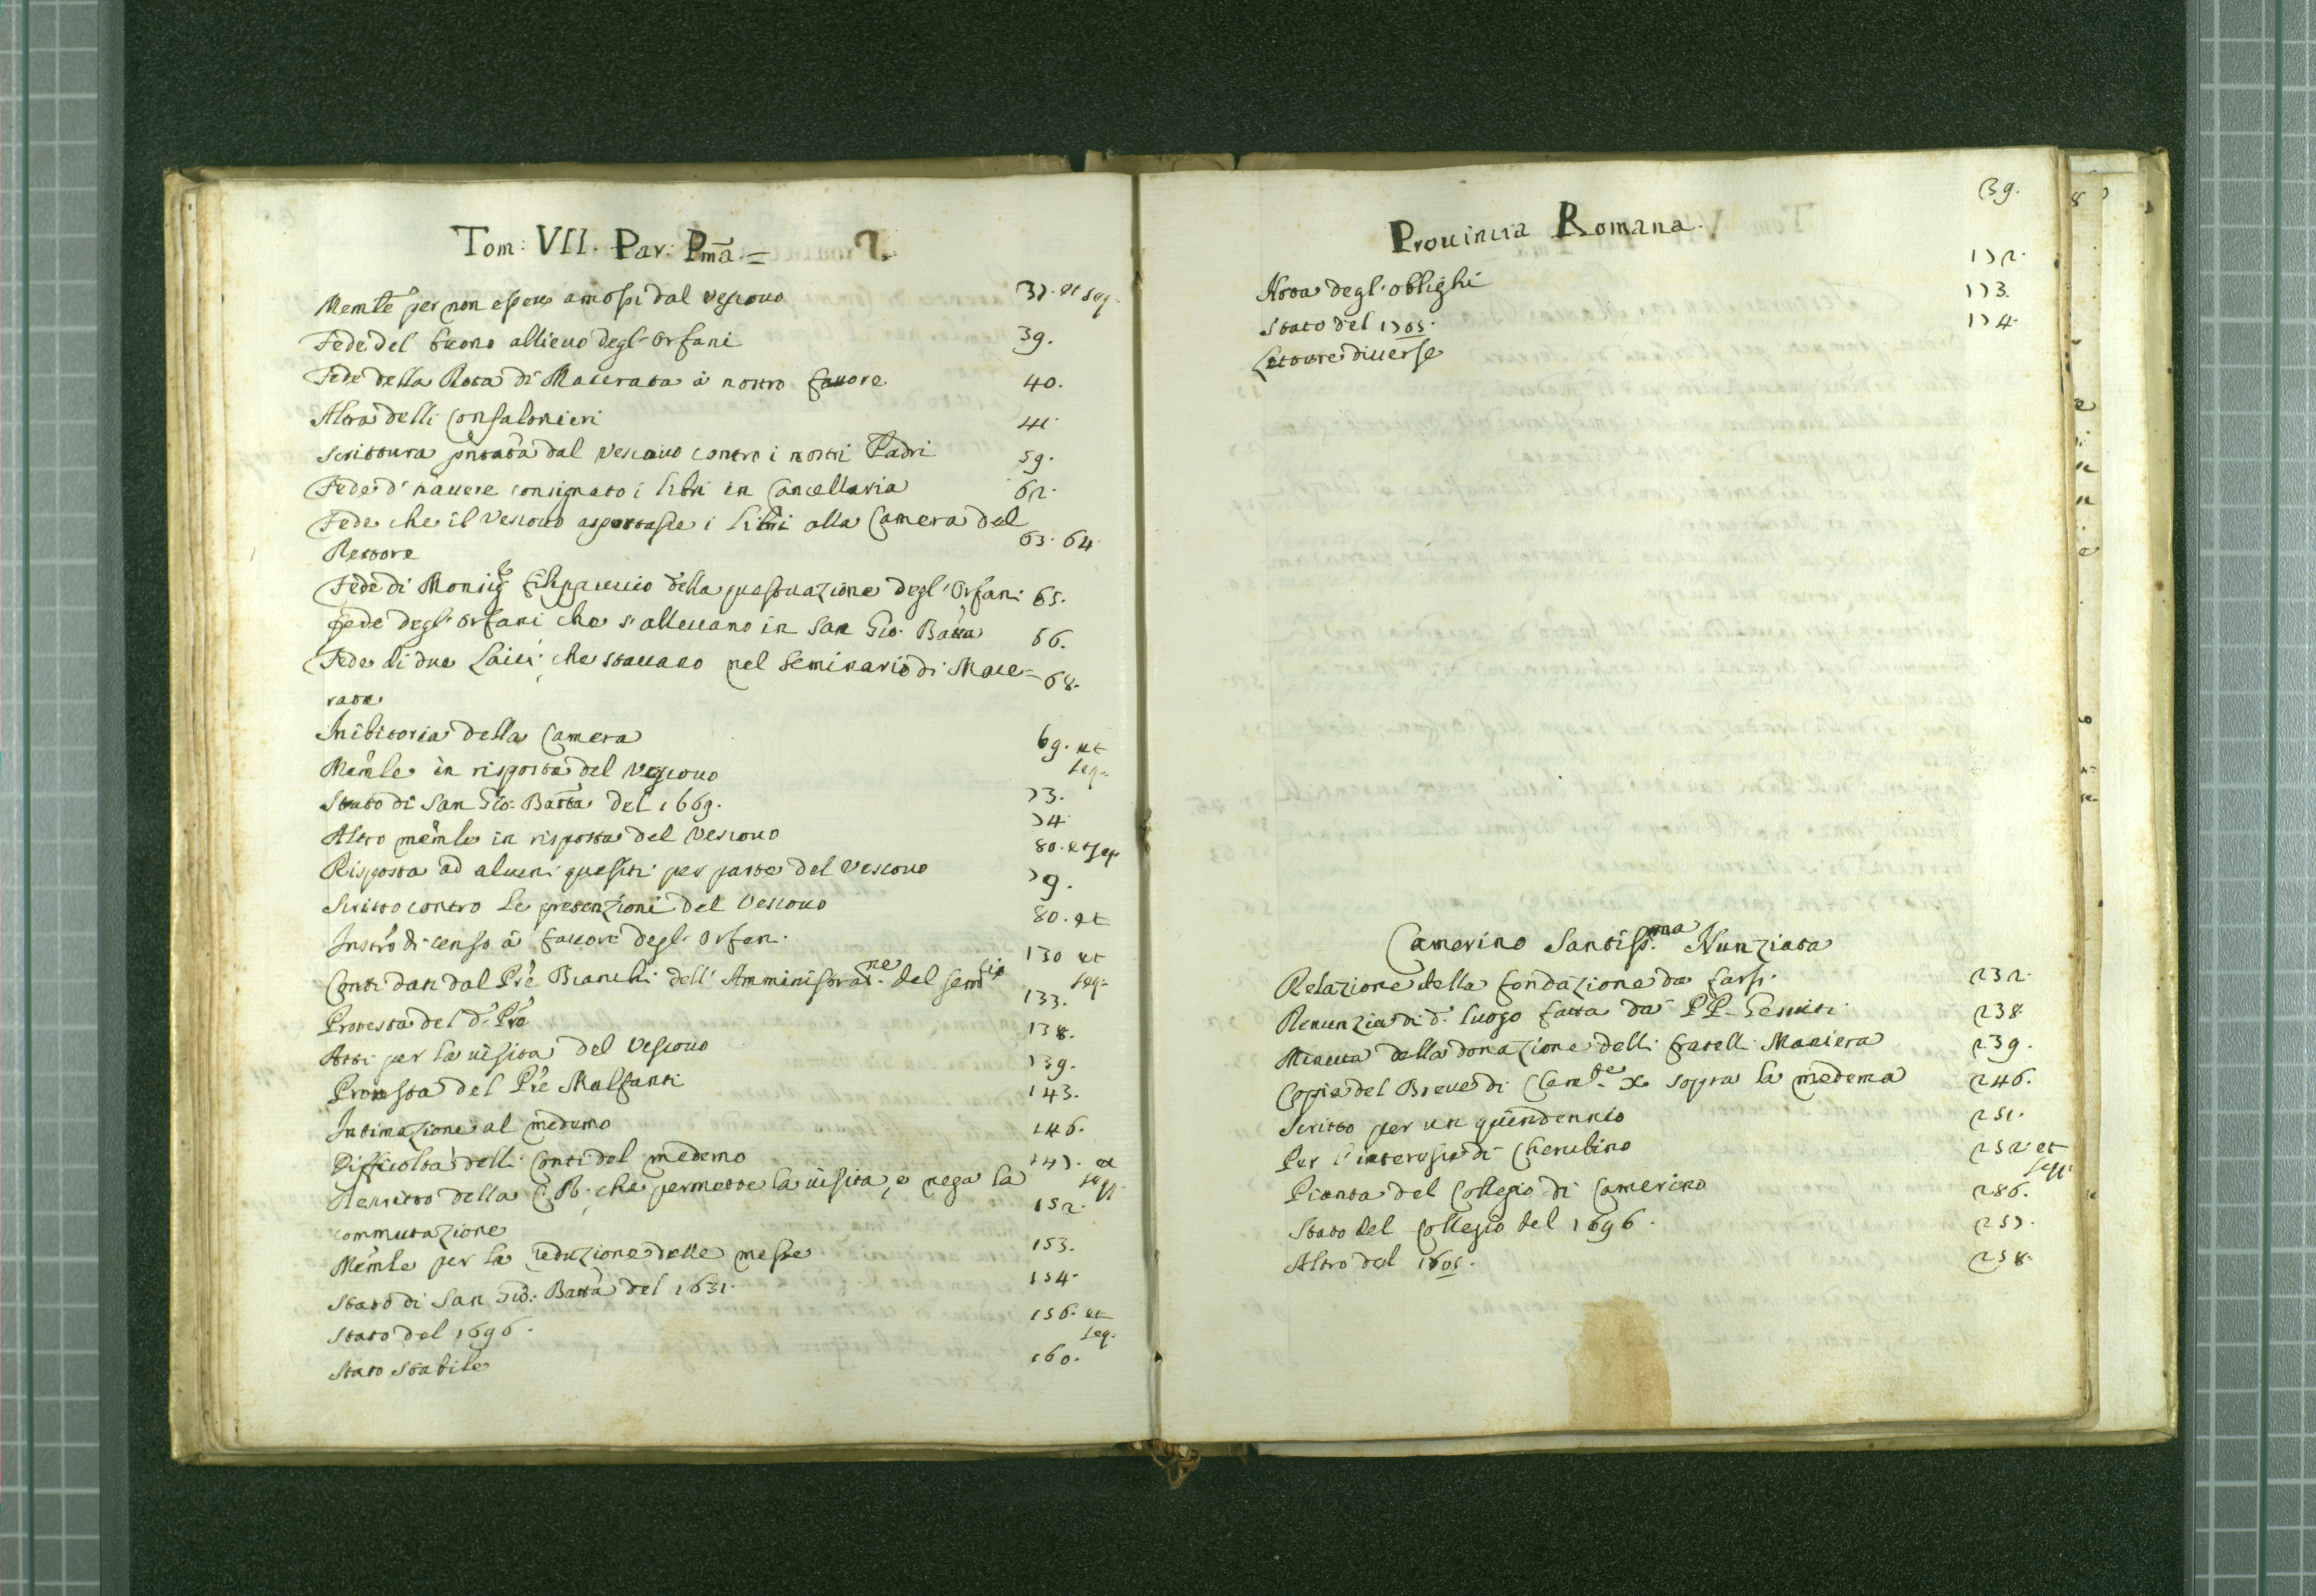 Tom: VII. Par: Pma. =
Memle per non essere amossi dal Vescouo 37. et seq.
Fede del buono allieuo degl'Orfani 39.
Fede della Rota di Macerata à nostro fauore 40.
Altra delli Confalonieri 41.
Scrittura pntata dal Vescouo contro i nostri Padri 59.
Fede d'hauere consignato i libri in Cancellaria 62.
Fede che il Vescouo asportasse i libri alla Camera del
Rettore 63. 64.
Fede di Monsig Filippuccio della questuazione degl'Orfani 65.
Fede degl'Orfani che s'alleuano in San Gio: Batta 66.
Fede di due Laici che stauano nel Seminario di Mace= 68.
rata
Inibitoria della Camera 69. et
Memle in risposta del Vescouo seq.
Stato di San Gio: Batta del 1669. 73.
Altro memle in risposta del Vescouo 74.
Risposta ad alcuni quesiti per parte del Vescouo 80. et seq.
Scritto contro le pretenzioni del Vescouo 79.
Instro di censo à fauore degl'Orfani 80. et
Conti dati dal Pre Bianchi dell'Amministrane. del semrio 130 et seq.
Protesta del d. Pre 133.
Atti per la uisita del Vescouo 138.
Protesta del Pre Malfanti 139.
Intimazione al medemo 143.
Difficoltà delli Conti del medemo 146.
Rescritto della C. R. che permette la uisita, e nega la 147. et seq.
commutazione 152.
Memle per la reduzione delle messe 153.
Stato di San Gio: Batta del 1651. 154.
Stato del 1696. 156. et seq.
Stato stabile 160.
Prouincia Romana.
39.
Nota degl'oblighi 172.
Stato del 1705. 173.
Lettere diuerse 174.
Camerino Santiss.ma Nunziata
Relazione della fondazione da farsi 232.
Renunzia di d. luogo fatta da PP. Gesuiti 238.
Minuta della donazione delli fratelli Maniera 239.
Coppia del Breue di Clemte. X. soppra la medema 246.
Scritto per un quindennio 251.
Per l'interesse di Cherubino 252. et seq.
Pianta del Collegio di Camerino 286.
Stato del Collegio del 1696. 257.
Altro del 1605. 258.